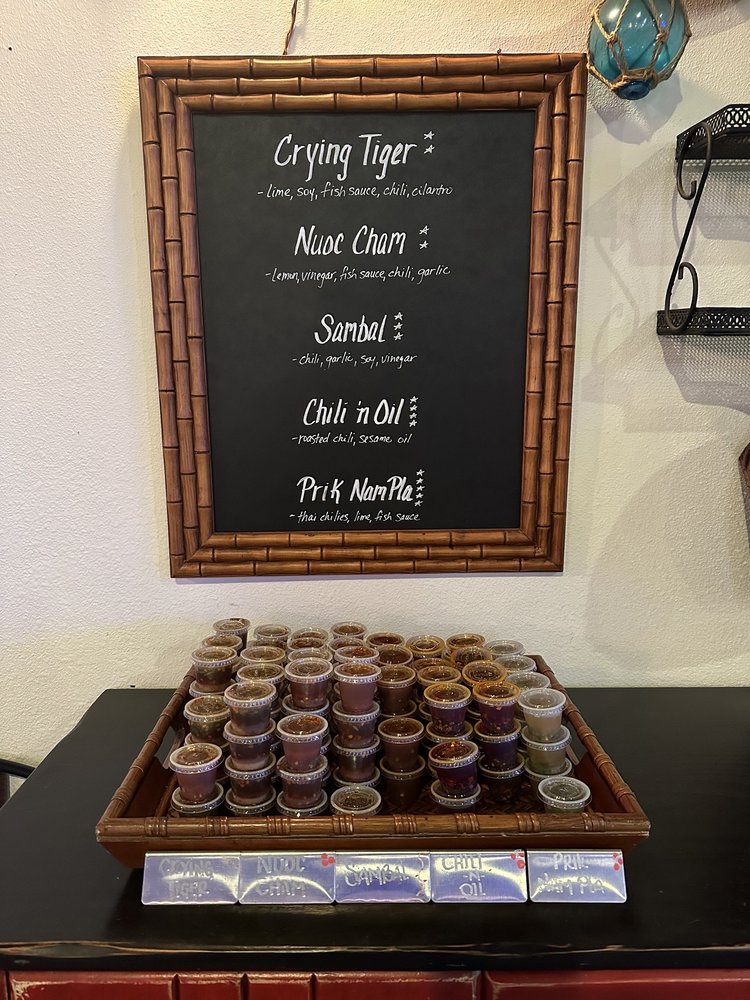 Crying Tiger ☆☆
- Lime, soy, fish sauce, chili, cilantro
Nuoc Cham ☆☆
- Lemon, vinegar, fish sauce, chili, garlic
Sambal ☆☆☆
- chili, garlic, soy, vinegar
Chili 'n Oil ☆☆☆☆
- roasted chili, sesame oil
Prik Nam Pla ☆☆☆☆☆
- thai chilies, lime, fish sauce
CRYING
TIGER
NUOC
CHAM
SAMBAL
CHILI
-N-
OIL
PRIK
NAM PLA